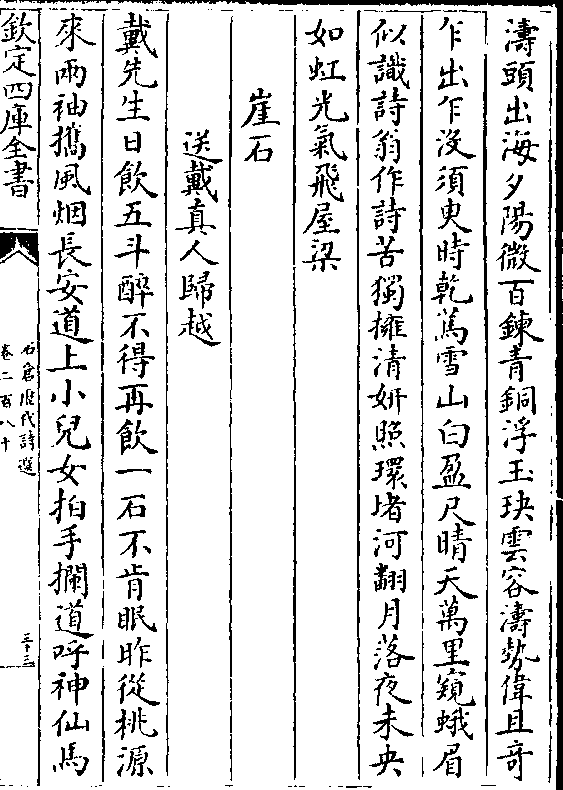 濤頭出海夕陽微百鍊青銅浮玉玦雲容濤勢偉且竒
乍出乍没須臾時乾為雪山白盈尺晴天萬里窺蛾眉
似識詩翁作詩苦獨擁清妍照環堵河翻月落夜未央
如虹光氣飛屋梁
崖石
送戴真人歸越
戴先生日飲五斗醉不得再飲一石不肯眠昨從桃源
來兩袖攜風烟長安道上小兒女拍手攔道呼神仙馬
欽定四庫全書
石倉歷代詩選
卷二百八十
三十三